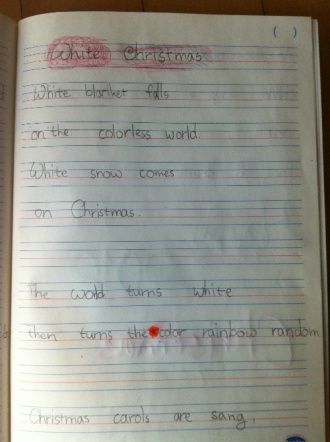 ( )
White Christmas
White blanket falls
on the colorless world.
White snow comes
on Christmas.
The world turns white
then turns the color rainbow random
Christmas carols are sang,